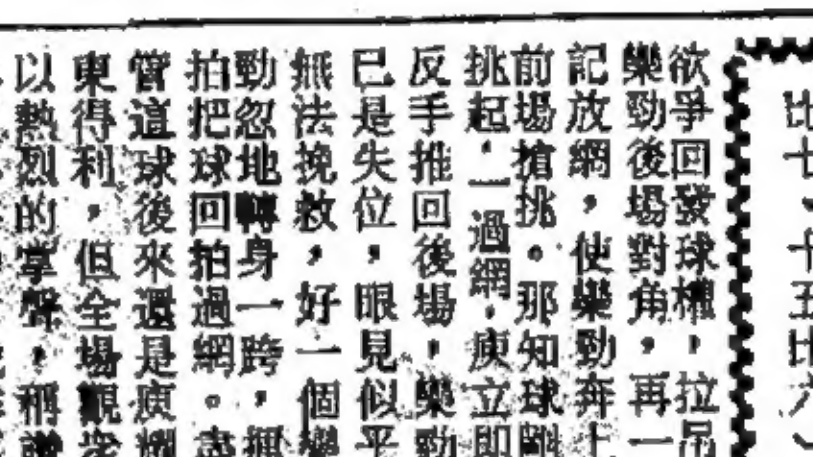 比七、十五比六、
欲爭回發球權，拉吊
樂勁後場對角，再一
記放網，使樂勁奔上
前場搶挑。那知球剛
挑起，一過網，庾立即
反手推回後場，樂勁
已是失位，眼見似乎
無法挽救，好一個樂
勁忽地轉身一跨，抓
拍把球回拍過網。盡
管這球後來還是庾耀
東得利，但全場觀衆
以熱烈的掌聲，稱讚